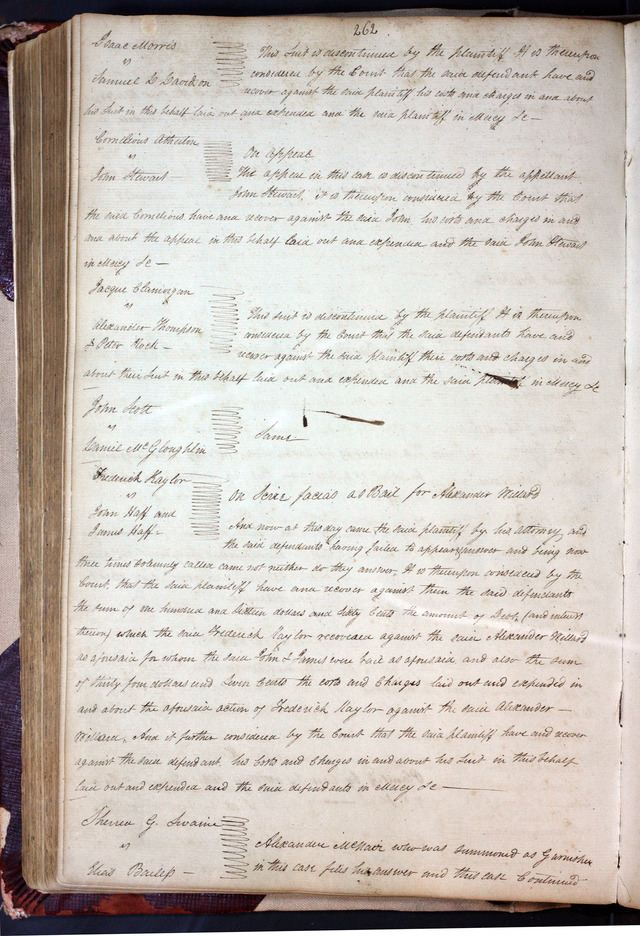 262
Isaac Morris
vs
Samuel D Davidson
This Suit is discontinued by the plaintiff It is thereupon
considered by the Court that the said defendant have and
recover against the said plaintiff his costs and charges in and about
his Suit in this behalf laid out and expended and the said plaintiff in Mercy &c —
Cornelious Atherton
vs
John Stewart —
On Appeal
The appeal in this case is discontinued by the appellant
John Stewart, it is thereupon considered by the Court that
the said Cornelious have and recover against the said John his costs and charges in and
and about the appeal in this behalf laid out and expended and the said John Stewart
in Mercy &c —
Jacque Clamorgan
vs
Alexander Thompson
& Peter Hock —
This suit is discontinued by the plaintiff It is thereupon
considered by the Court that the said defendants have and
recover against the said plaintiff their costs and charges in and
about their Suit in this behalf laid out and expended and the said plaintiff in Mercy &c
John Scott
vs
Daniel McGloughlin
Same
Frederick Kaylor
vs
John Haff and
James Haff —
On Scire facias as Bail for Alexander Willard
And now at this day came the said plaintiff by his attorney and
the said defendants having failed to appear & answer and being now
three times solemnly called came not neither do they answer, It is thereupon considered by the
Court, that the said plaintiff have and recover against them the said defendants
the sum of one hundred and sixteen dollars and sixty Cents the amount of Debt, (and interest
thereon) which the said Frederick Kaylor recovered against the said Alexander Willard
as aforesaid for whom the said John & James were bail as aforesaid and also the sum
of thirty four dollars and seven Cents the costs and Charges laid out and expended in
and about the aforesaid action of Frederick Kaylor against the said Alexander —
Willard, And it further considered by the Court that the said plaintiff have and recover
against the said defendant, his Costs and Charges in and about his Suit in this behalf
laid out and expended and the said defendants in Mercy &c —
G. Swaine
vs
Elias
Alexander McNair who was Summoned as Garnishee
in this case files his answer and this case Continued